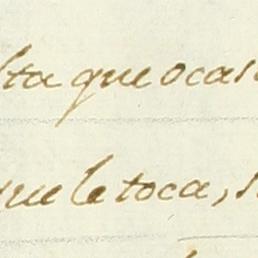 sta que ocas
que le toca, s